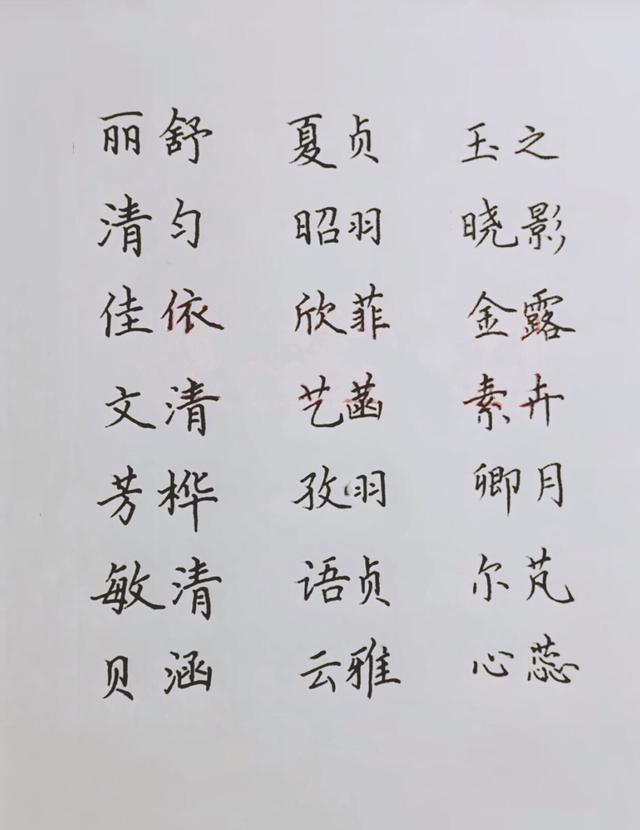 丽舒 夏贞 玉之
清匀 昭羽 晓影
佳依 欣菲 金露
文清 艺菡 素卉
芳桦 孜羽 卿月
敏清 语贞 尔芃
贝涵 云雅 心蕊